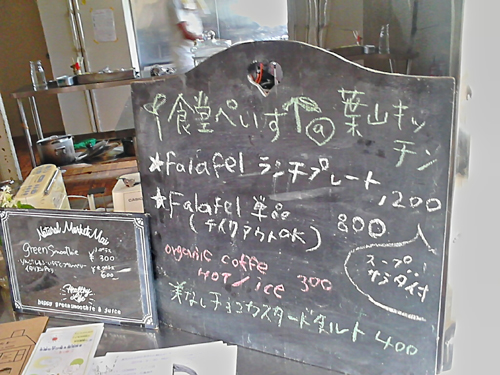 食堂ぺいす @ 葉山キッチン
★Falafel ランチプレート
1200
★Falafel 単品 800
(テイクアウトOK)
スープ!
サラダ付
organic coffe
HOT/ice 300
卵なしチョコカスタードタルト 400
Natural Market Mai
Green Smoothie
¥300
600
Healthy
happy greensmoothie & juice